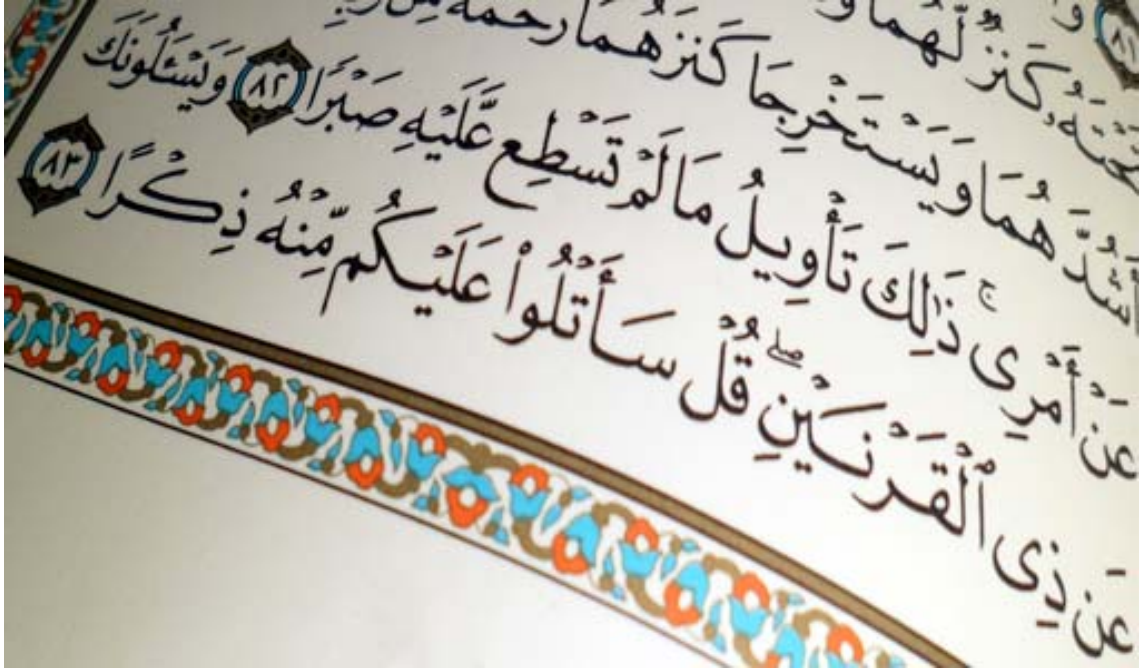 ٨١
تَحْتَهُۥ كَنزٌ لَّهُمَا
أَشُدَّهُمَا وَيَسْتَخْرِجَا كَنزَهُمَا رَحْمَةً مِّن
عَنْ أَمْرِى ۚ ذَٰلِكَ تَأْوِيلُ مَا لَمْ تَسْطِع عَّلَيْهِ صَبْرًا ٨٢ وَيَسْـَٔلُونَكَ
عَن ذِى ٱلْقَرْنَيْنِ ۖ قُلْ سَأَتْلُوا۟ عَلَيْكُم مِّنْهُ ذِكْرًا ٨٣